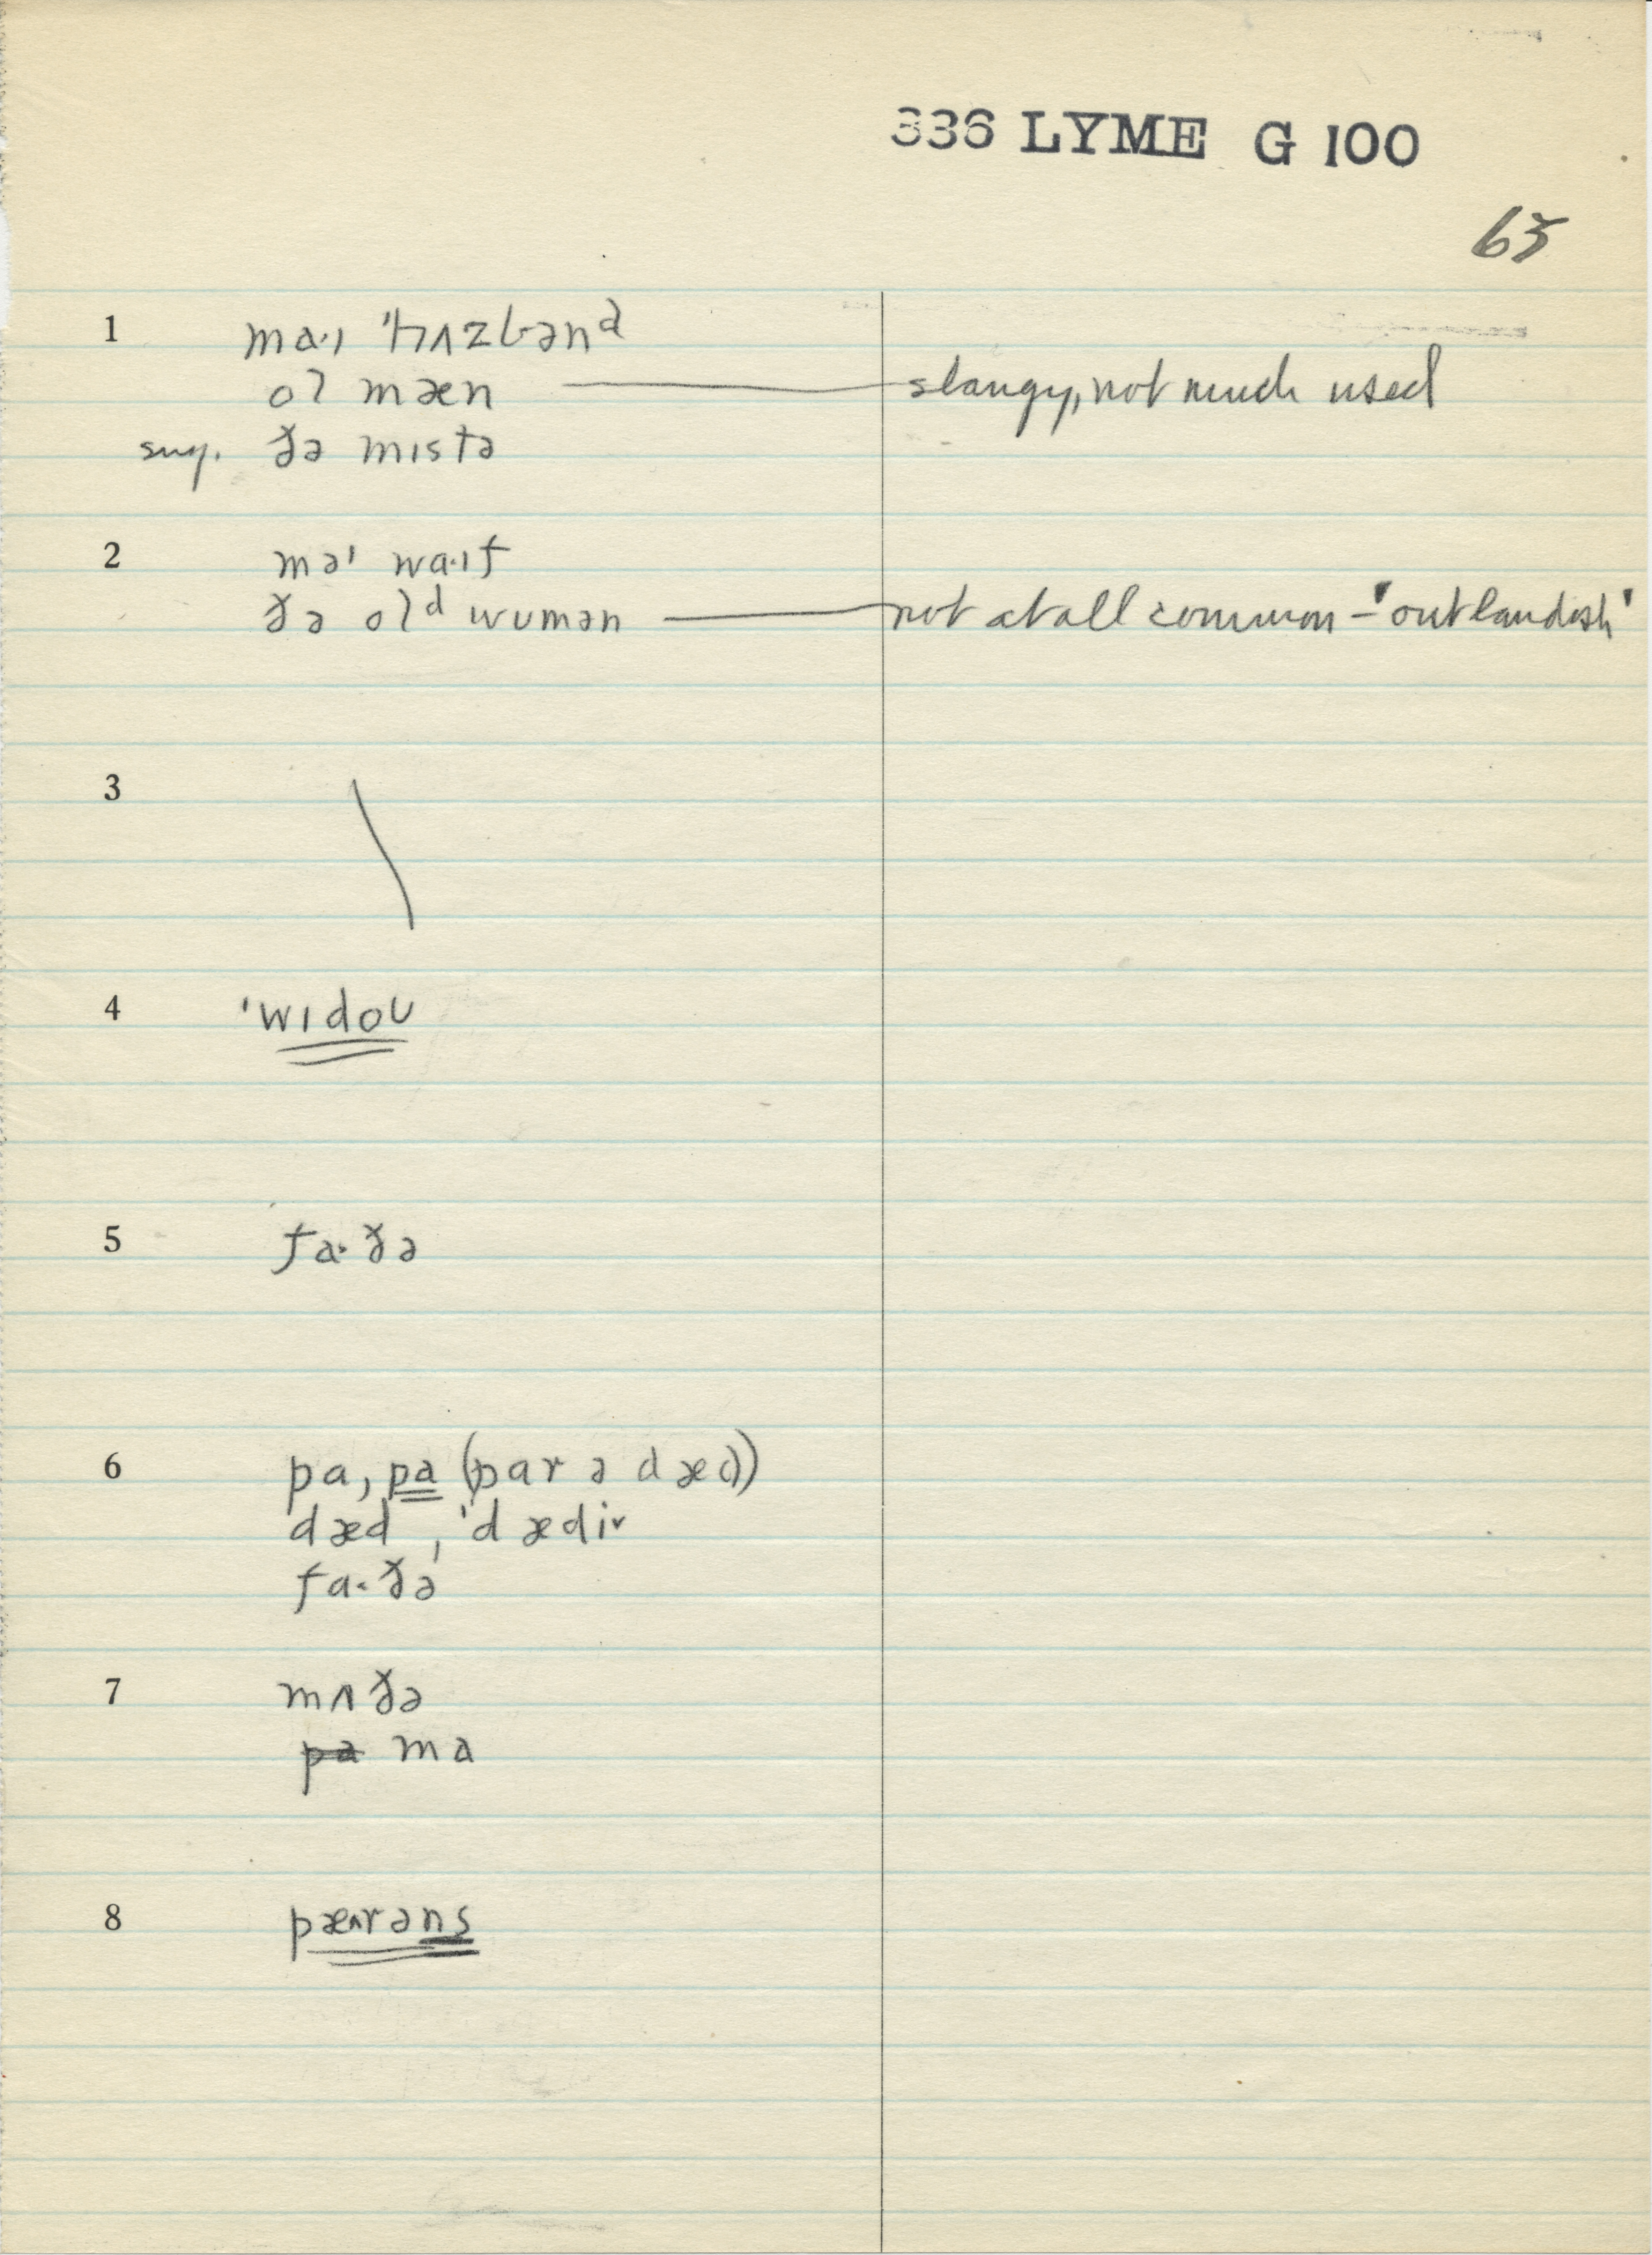 336 LYME G 100
63
1 ma·ɪ 'hʌzbənᵈ
oɫ mæn — slangy, not much used
sug. ðə mɪstə
2 maˈ wa·ɪf
ðə oɫᵈ wʊmən — not at all common - 'outlandish'
3
4 'wɪdoʊ
5 fa·ðə
6 pa, pa (par ə dæd)
dæd, 'dædi˅
fa·ðə
7 mʌðə
pa ma
8 pæ˄rəns